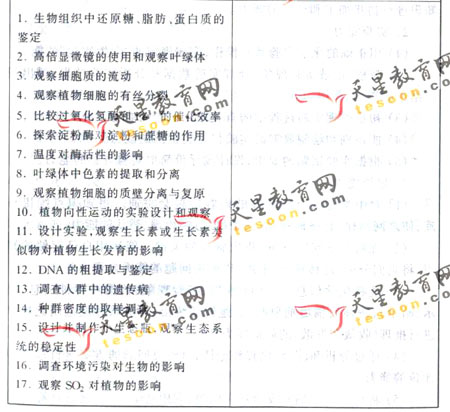 1. 生物组织中还原糖、脂肪、蛋白质的
鉴定
2. 高倍显微镜的使用和观察叶绿体
3. 观察细胞质的流动
4. 观察植物细胞的有丝分裂
5. 比较过氧化氢酶和 的催化效率
6. 探索淀粉酶对淀粉和蔗糖的作用
7. 温度对酶活性的影响
8. 叶绿体中色素的提取和分离
9. 观察植物细胞的质壁分离与复原
10. 植物向性运动的实验设计和观察
11. 设计实验,观察生长素或生长素类
似物对植物生长发育的影响
12. DNA的粗提取与鉴定
13. 调查人群中的遗传病
14. 种群密度的取样调查
15. 设计并制作小生态瓶,观察生态系
统的稳定性
16. 调查环境污染对生物的影响
17. 观察 SO₂ 对植物的影响
天星教育网
tesoon.com
天星教育网
tesoon.com
天星教育网
tesoon.com
天星教育网
tesoon.com